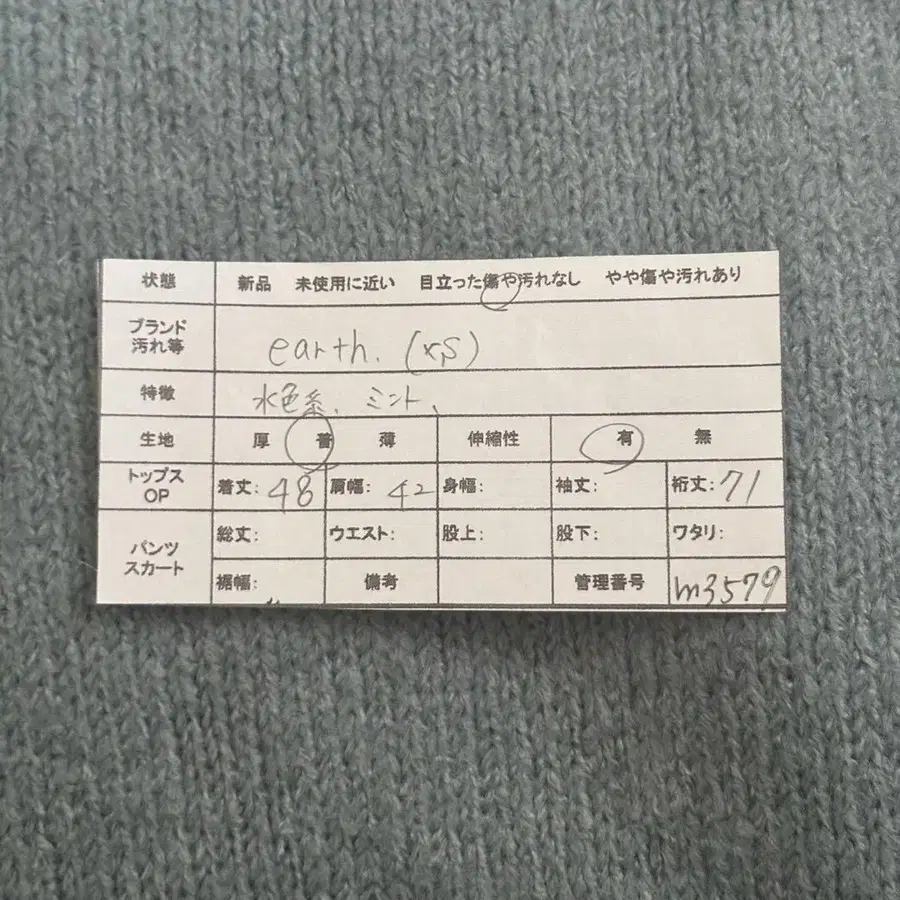 状態 新品 未使用に近い 目立った傷や汚れなし やや傷や汚れあり
ブランド
汚れ等 earth. (xs)
特徴 水色系、ミント、
生地 厚 普 薄 伸縮性 有 無
トップス
OP 着丈: 48 肩幅: 42 身幅: 袖丈: 裄丈: 71
パンツ
スカート 総丈: ウエスト: 股上: 股下: ワタリ:
裾幅: 備考 管理番号 m3579